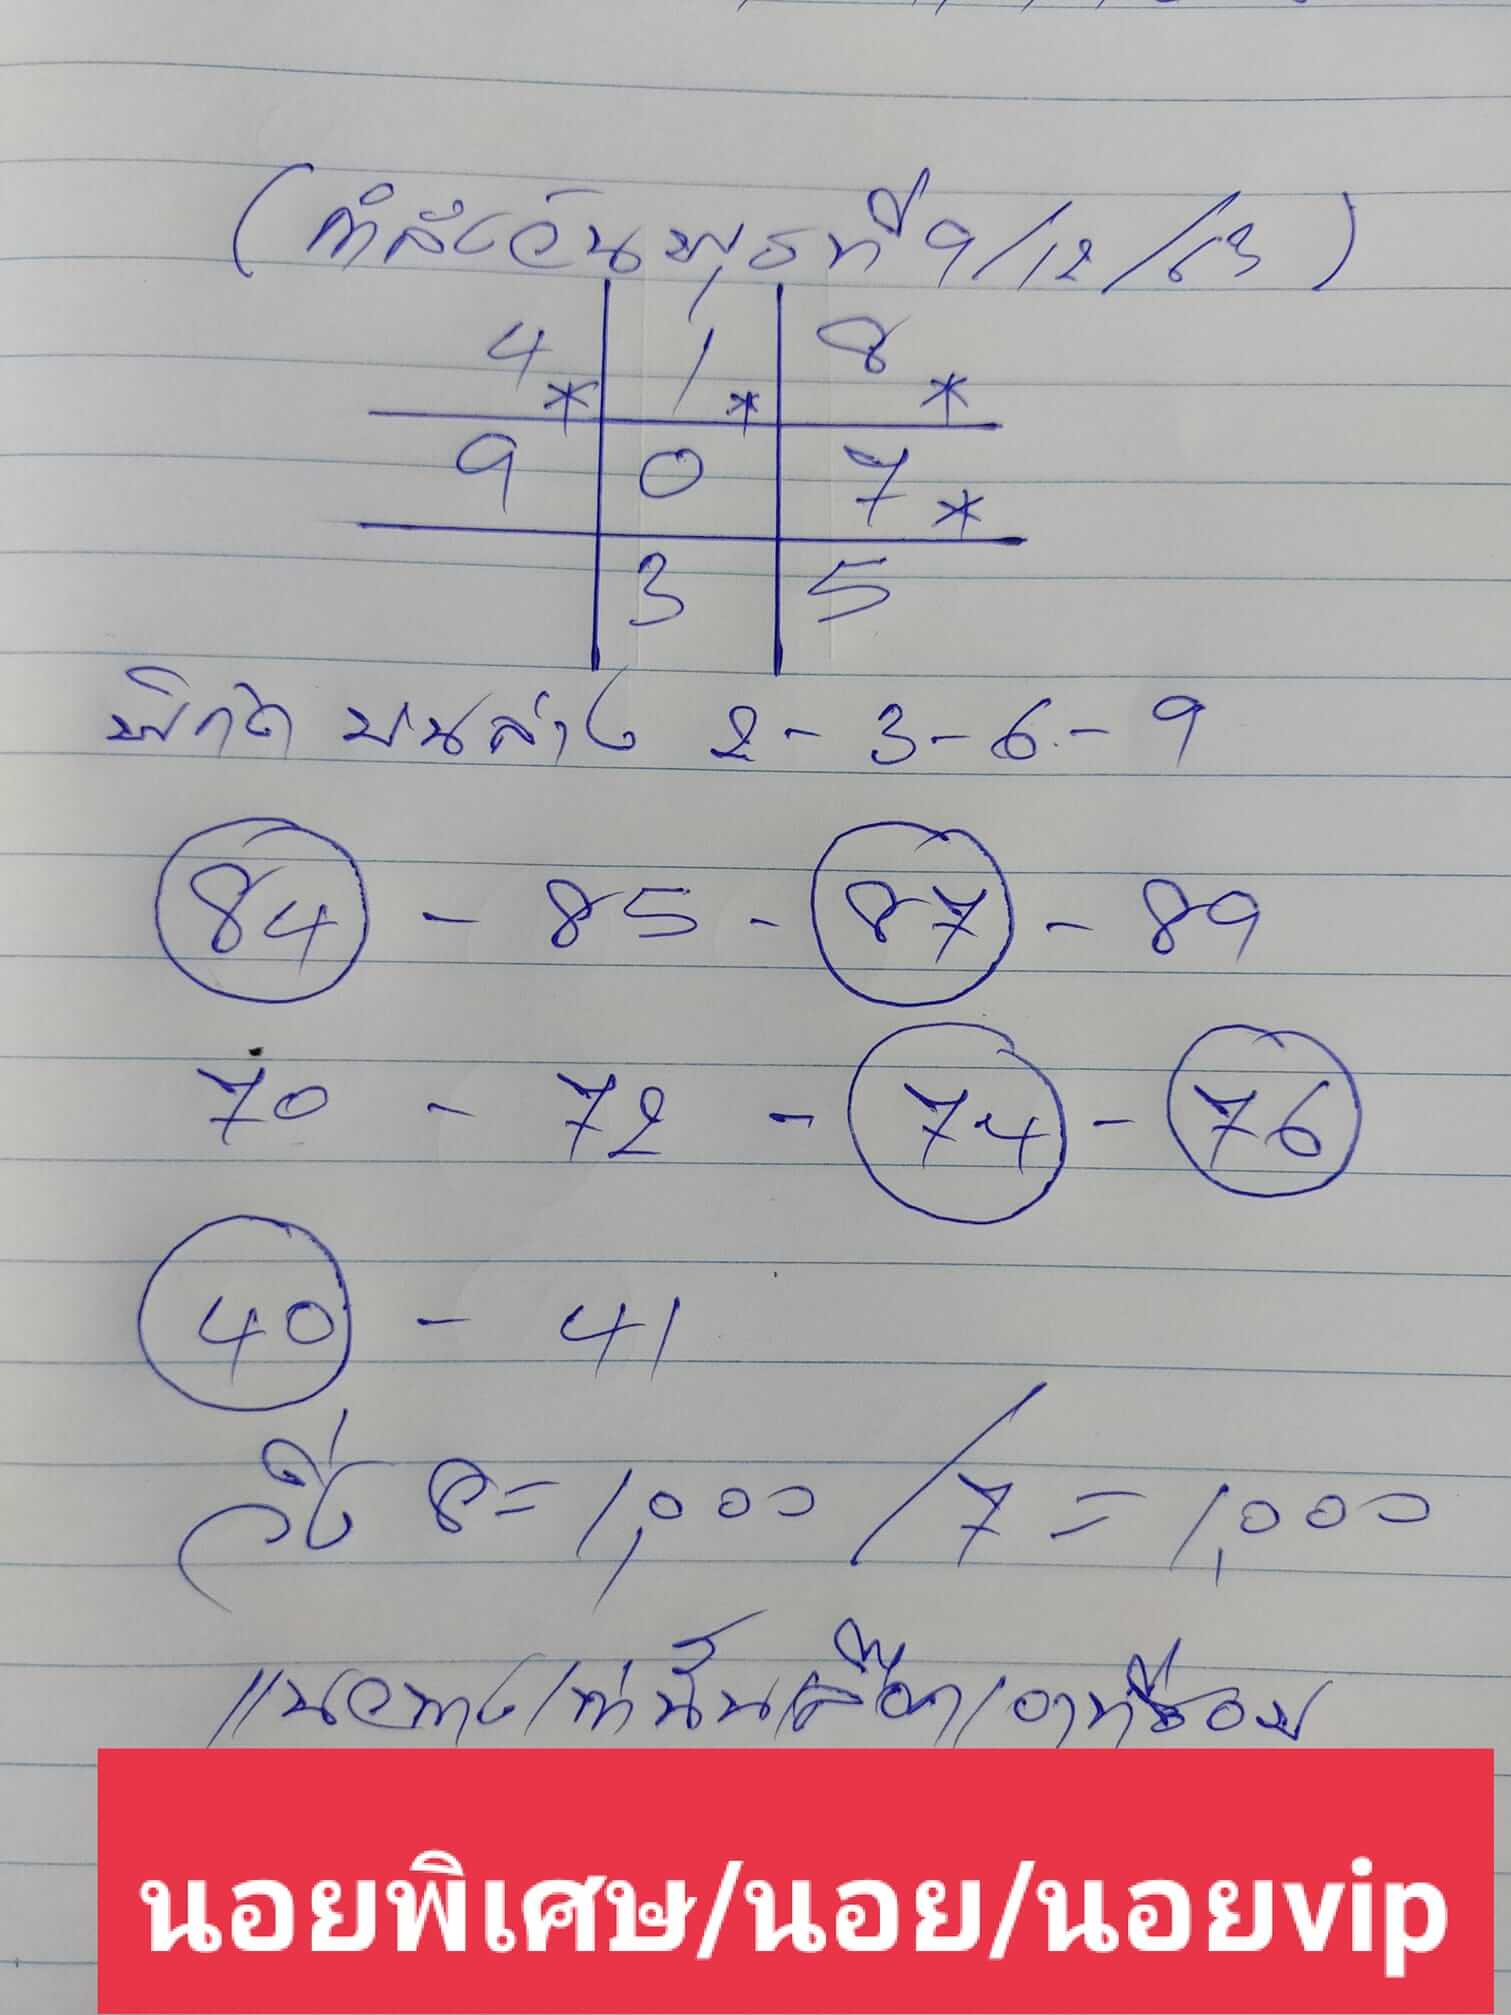 (กำลังวันพุธที่ 9/12/63)
4* 1* 8*
9 0 7*
3 5
พิกัด บนล่าง 2-3-6-9
84 - 85 - 87 - 89
70 - 72 - 74 - 76
40 - 41
วิ่ง 8=1,000 / 7=1,000
แนวทางเท่านั้นเลือกเอาที่ชอบ
นอยพิเศษ/นอย/นอยvip